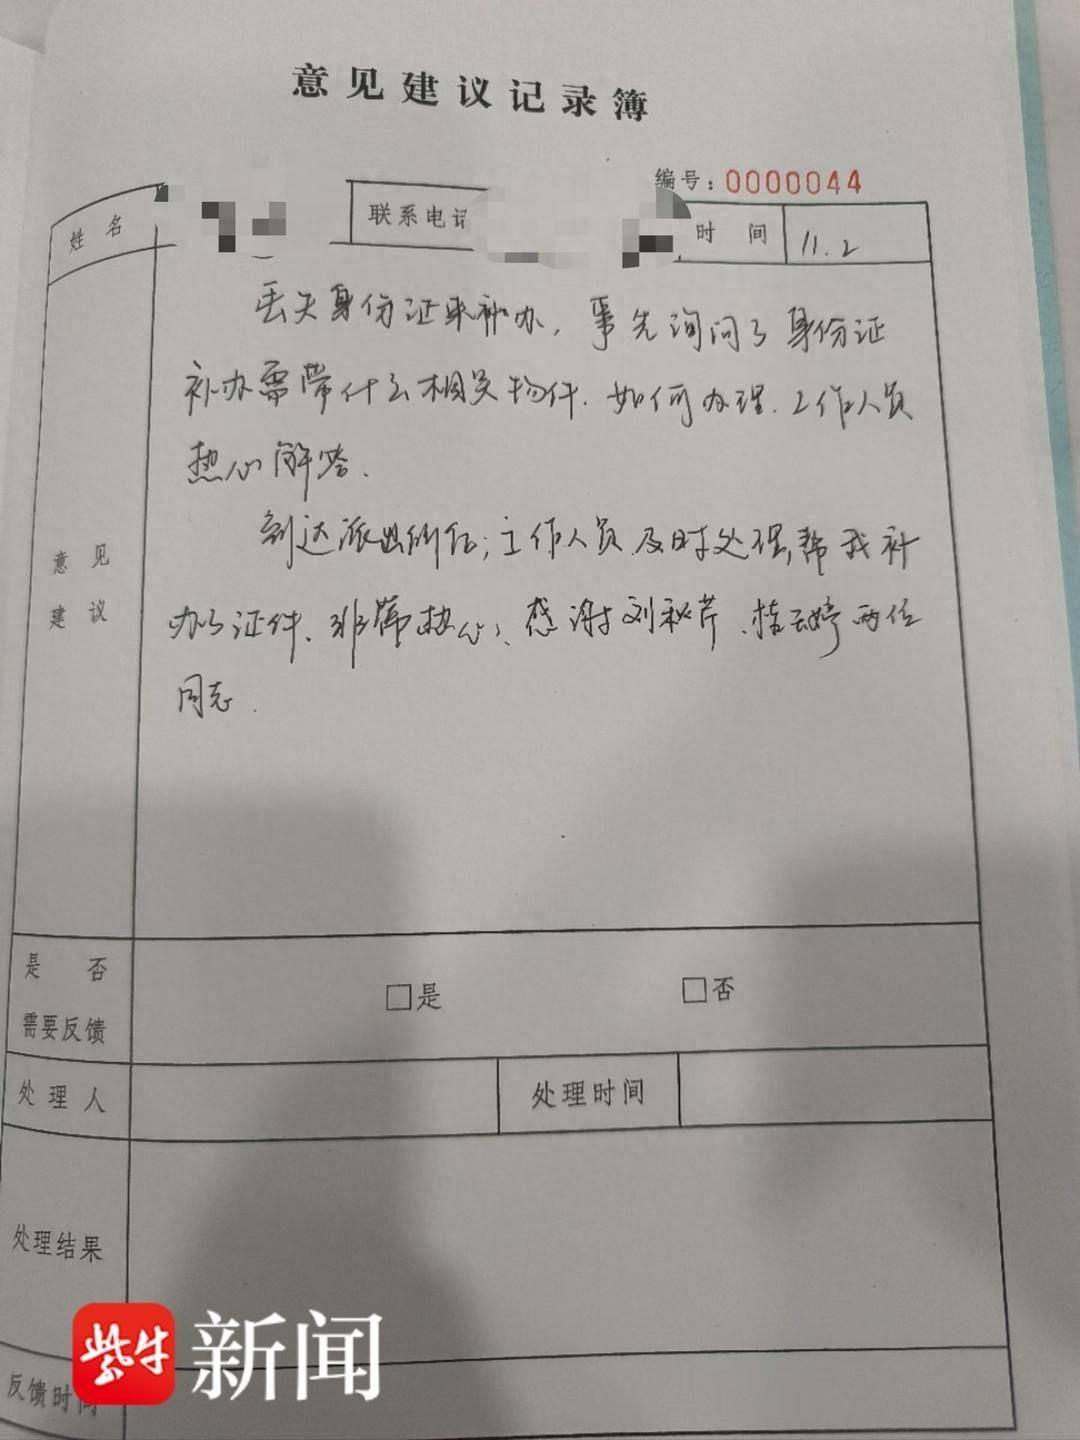 意见建议记录簿
编号：0000044
姓名
联系电
时间
11.2
丢失身份证来补办，事先询问了身份证
补办需带什么相关物件、如何办理、工作人员
热心解答.
到达派出所后；工作人员及时处理，帮我补
办了证件、非常热心、感谢刘秋芹、桂云婷两位
同志.
意见
建议
是否
需要反馈
□是
□否
处理人
处理时间
处理结果
反馈时间
紫牛新闻